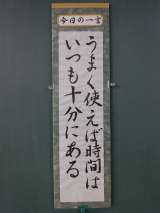 今日の一言
うまく使えば時間は
いつも十分にある